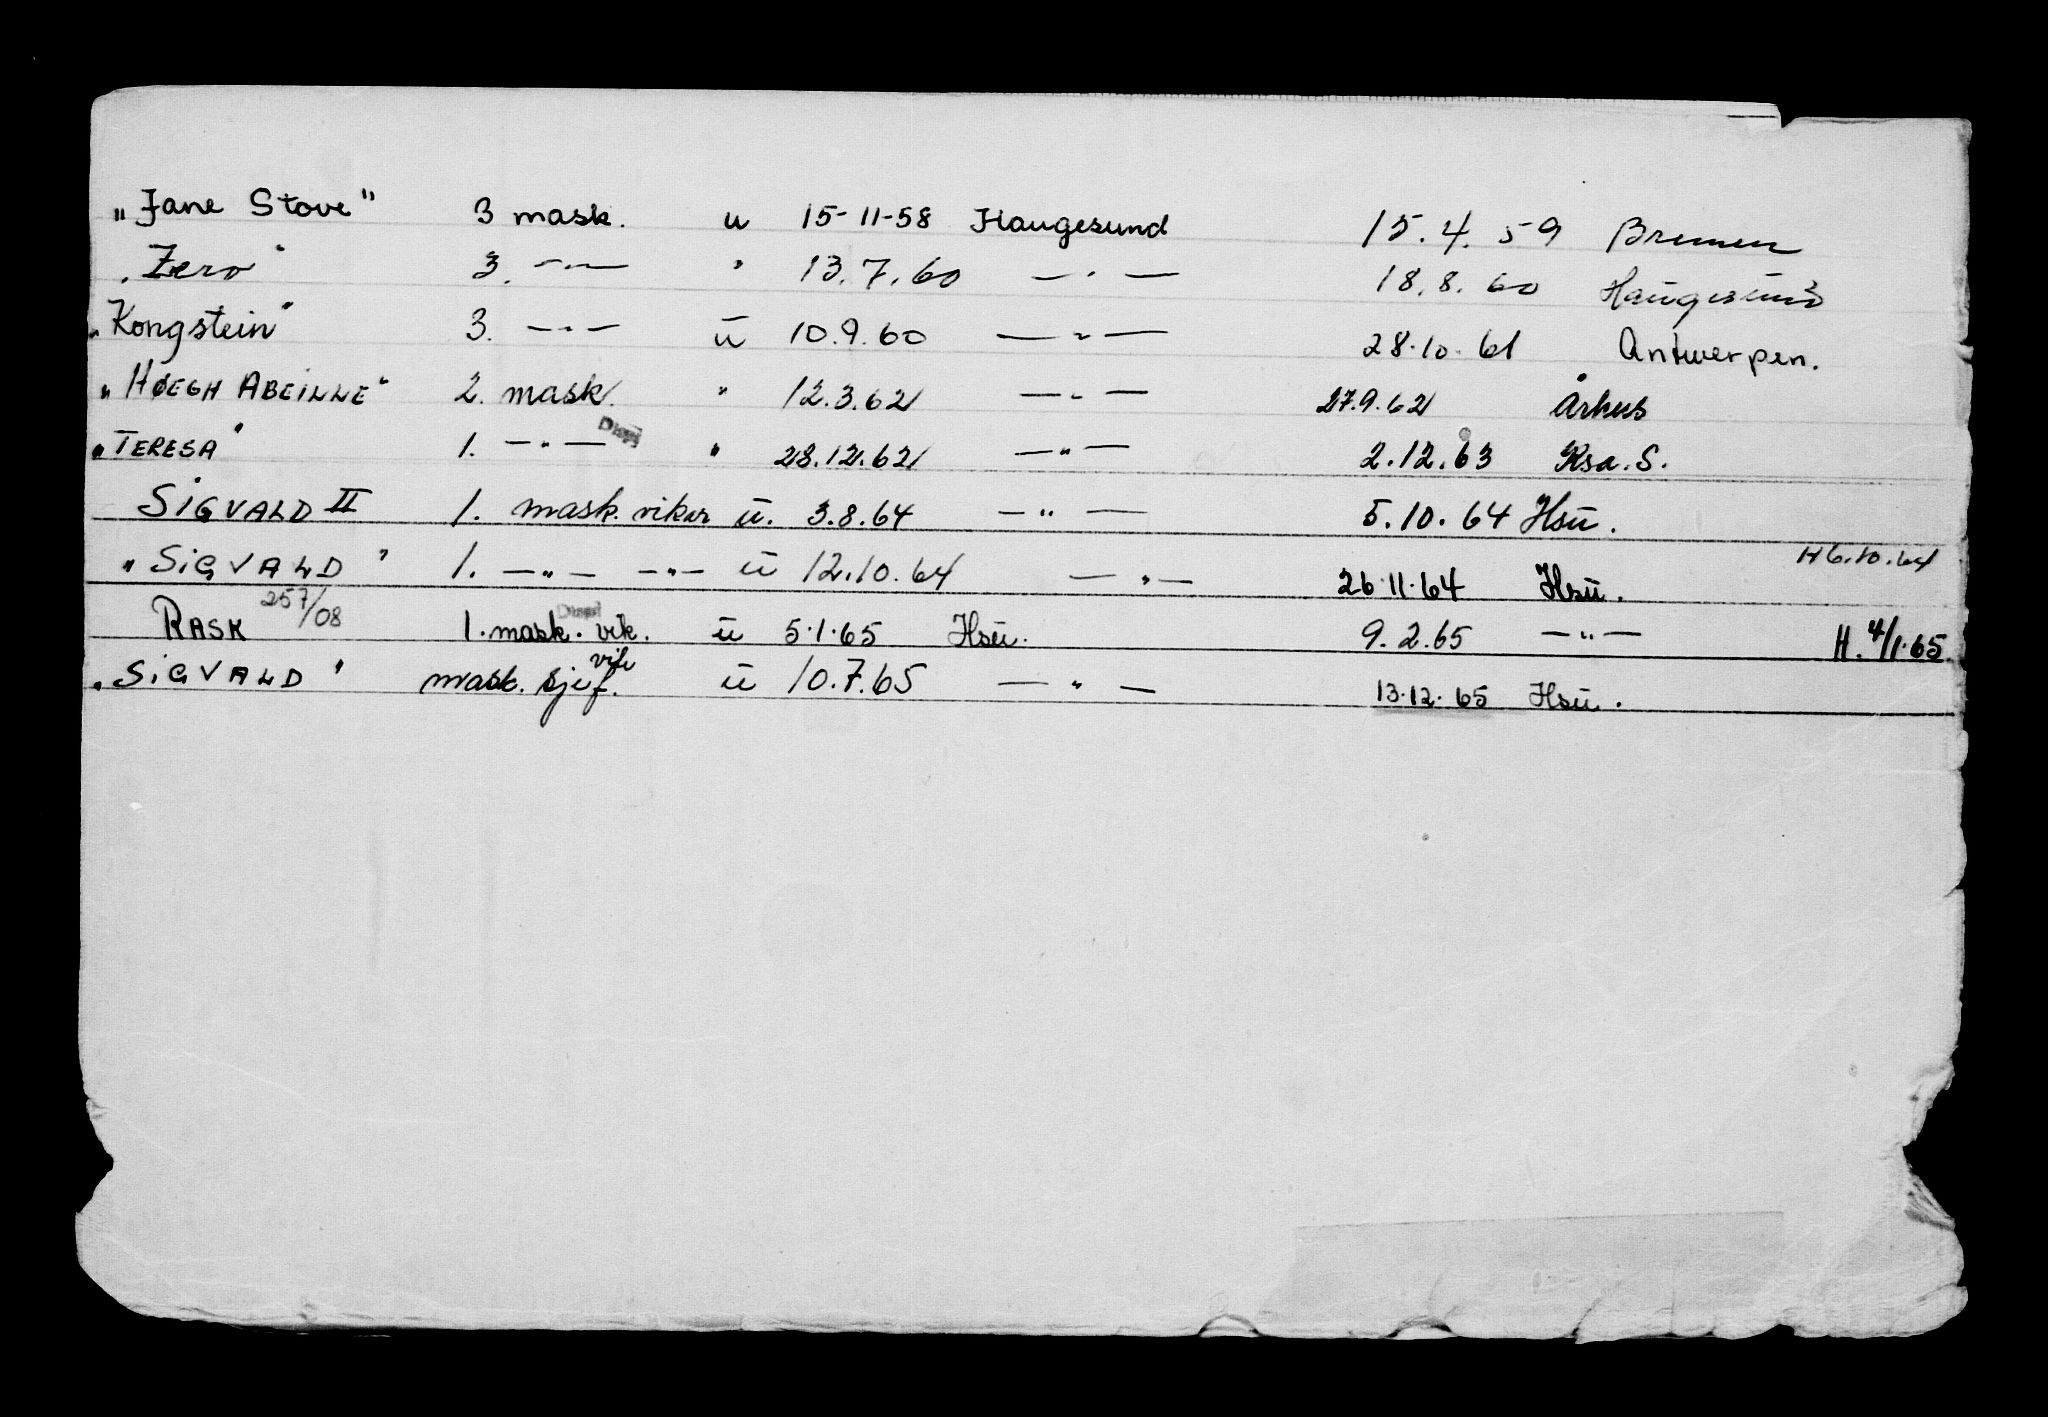 „Jane Stove" 3 mask. u 15-11-58 Haugesund 15.4.59 Bremen
„Zero" 3. —"— " 13.7.60 —"— 18.8.60 Haugesund
„Kongstein" 3. —"— ū 10.9.60 —"— 28.10.61 Antwerpen.
„HØEGH ABEILLE" 2. mask. " 12.3.62 —"— 27.9.62 Århus
„TERESA" 1. —"— Disp " 28.12.62 —"— 2.12.63 Ksa.S.
SIGVALD II 1. mask. vikar ū. 3.8.64 —"— 5.10.64 Hsū.
„SIGVALD" 1. —"— —"— ū 12.10.64 —"— 26.11.64 Hsū. H 6.10.64
RASK 257/08 1. mask. vik. Disp ū 5.1.65 Hsū. 9.2.65 —"— H. 4/1.65.
„SIGVALD" mask. sjef. vik ū 10.7.65 —"— 13.12.65 Hsū.